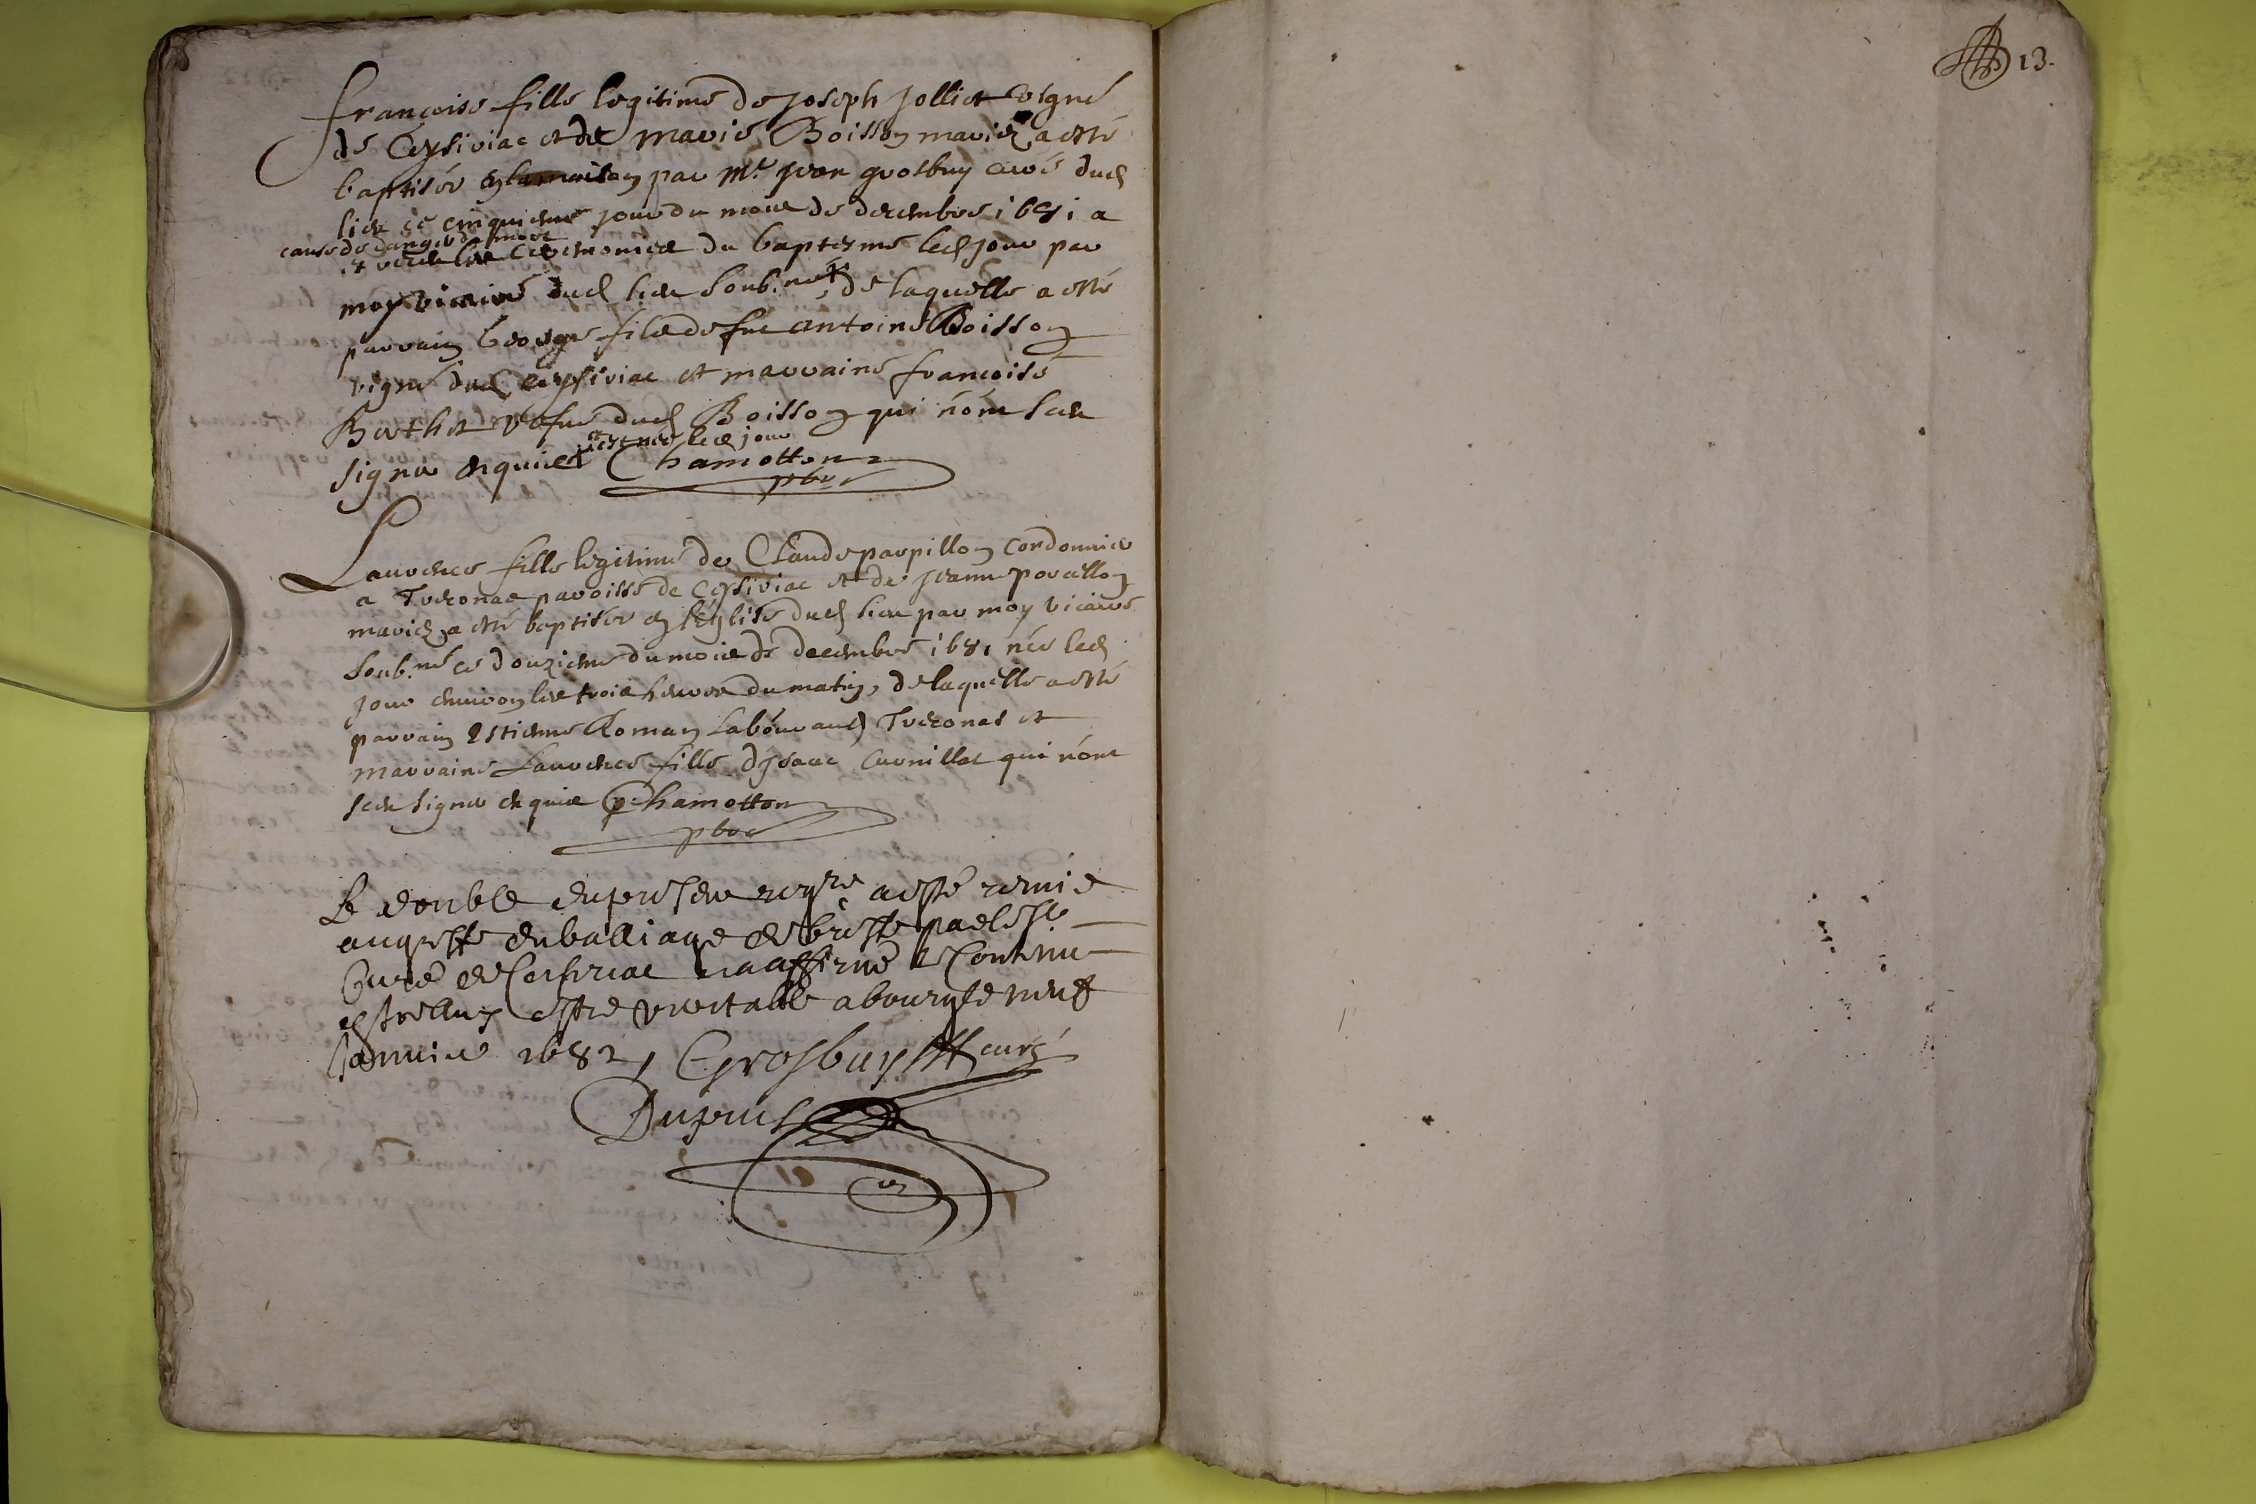 françoise fille legitime de Joseph Jolliet vigne
de Ceysiriac et de Marie Boisson mariez a esté
baptisée en la maison par Mre Jean grosbuy curé dud
lieu ce cinquieme jour du mois de decembre 1681 a
cause de danger de mort
et receu les ceremonies du baptesme led jour par
moy vicaire dud lieu soub.né, de laquelle a esté
parrain George fils de feu Antoine Boisson
vigne dud Ceysiriac et marraine françoise
Bertht vefue dud Boisson qui n'ont sceu
et est née led jour
signer enquis Chamotton
pbre
Laurence fille legitime de Claude parpillon cordonnier
a Treconas paroisse de Ceysiriac et de Jeanne porcellon
mariez, a esté baptisée en l'eglise dud lieu par moy vicaire
soub.né ce douzieme du mois de decembre 1681 née led
jour environ les trois heures du matin, de laquelle a esté
parrain Estienne Roman laboureur aud Treconas et
marraine Laurence fille d'Isaac Curnillat qui n'ont
sceu signer enquis Chamotton
pbre
Le double du present regre a esté remis
au greffe du balliage de bresse par le Sr
Curé de Ceysiriac qui a affirmé le contenu
estre veritable a bourg le neuf
Janvier 1682, Grosbuy curé
Dupuis
13.